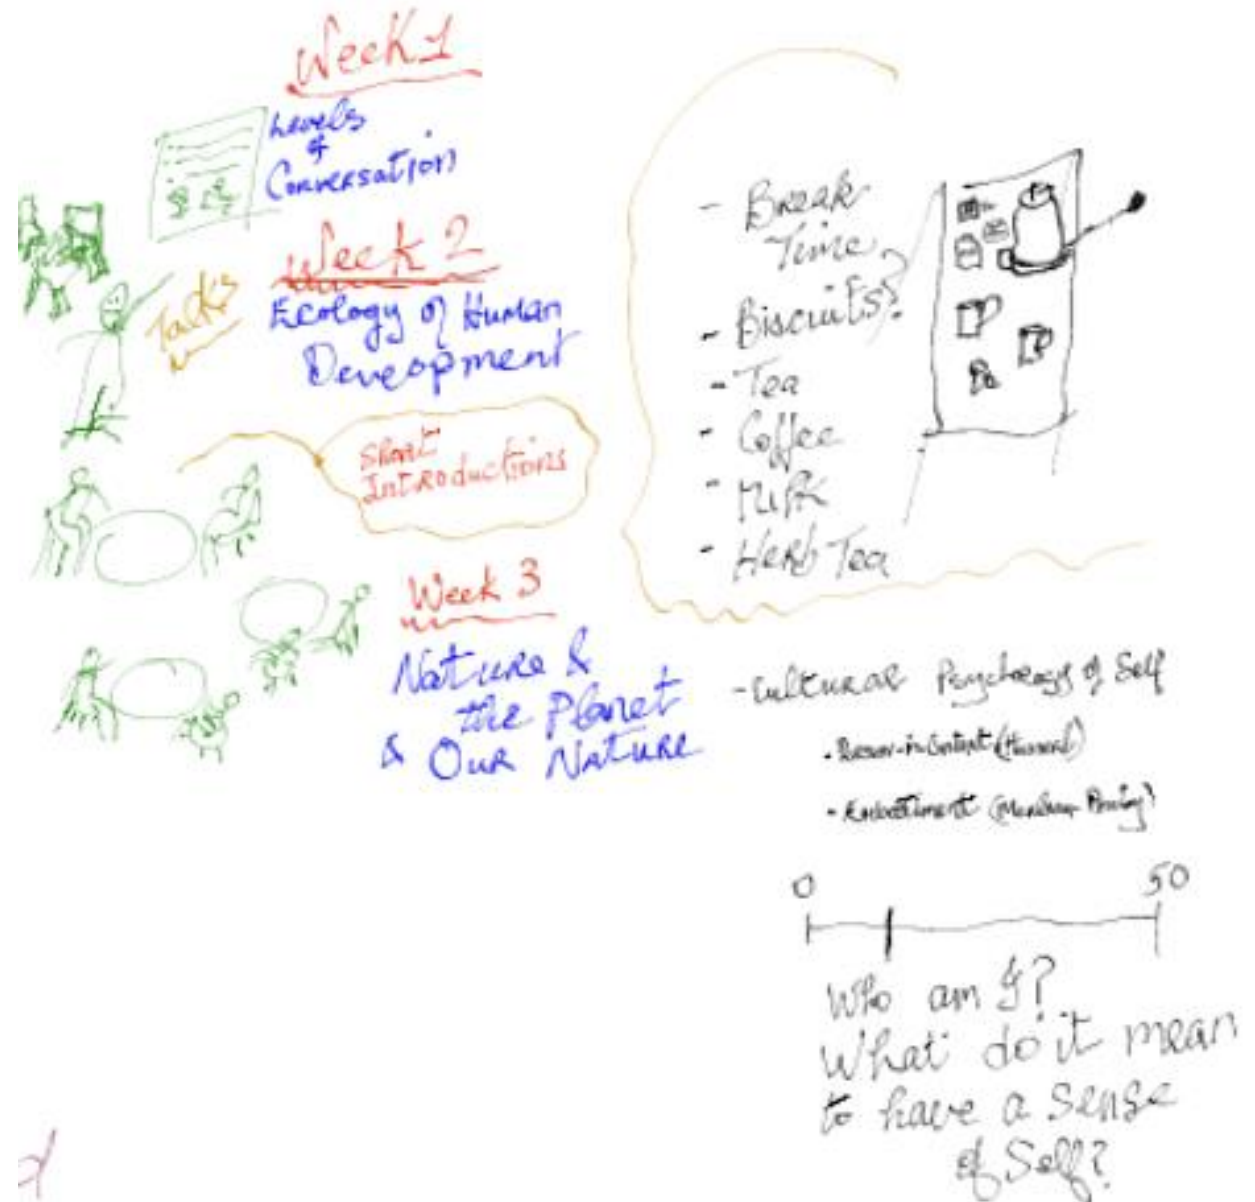 Week 1
Levels
of
Conversation
Week 2
Talks
Ecology of Human
Deveopment
Short
Introductions
Week 3
Nature &
the Planet
& Our Nature
- Break
Time
- Biscuits?
- Tea
- Coffee
- Milk
- Herb Tea
- Cultural Psychology of Self
- Person-in-Context (Husserl)
- Embodiment
0 50
Who am I?
What do it mean
to have a sense
of Self?